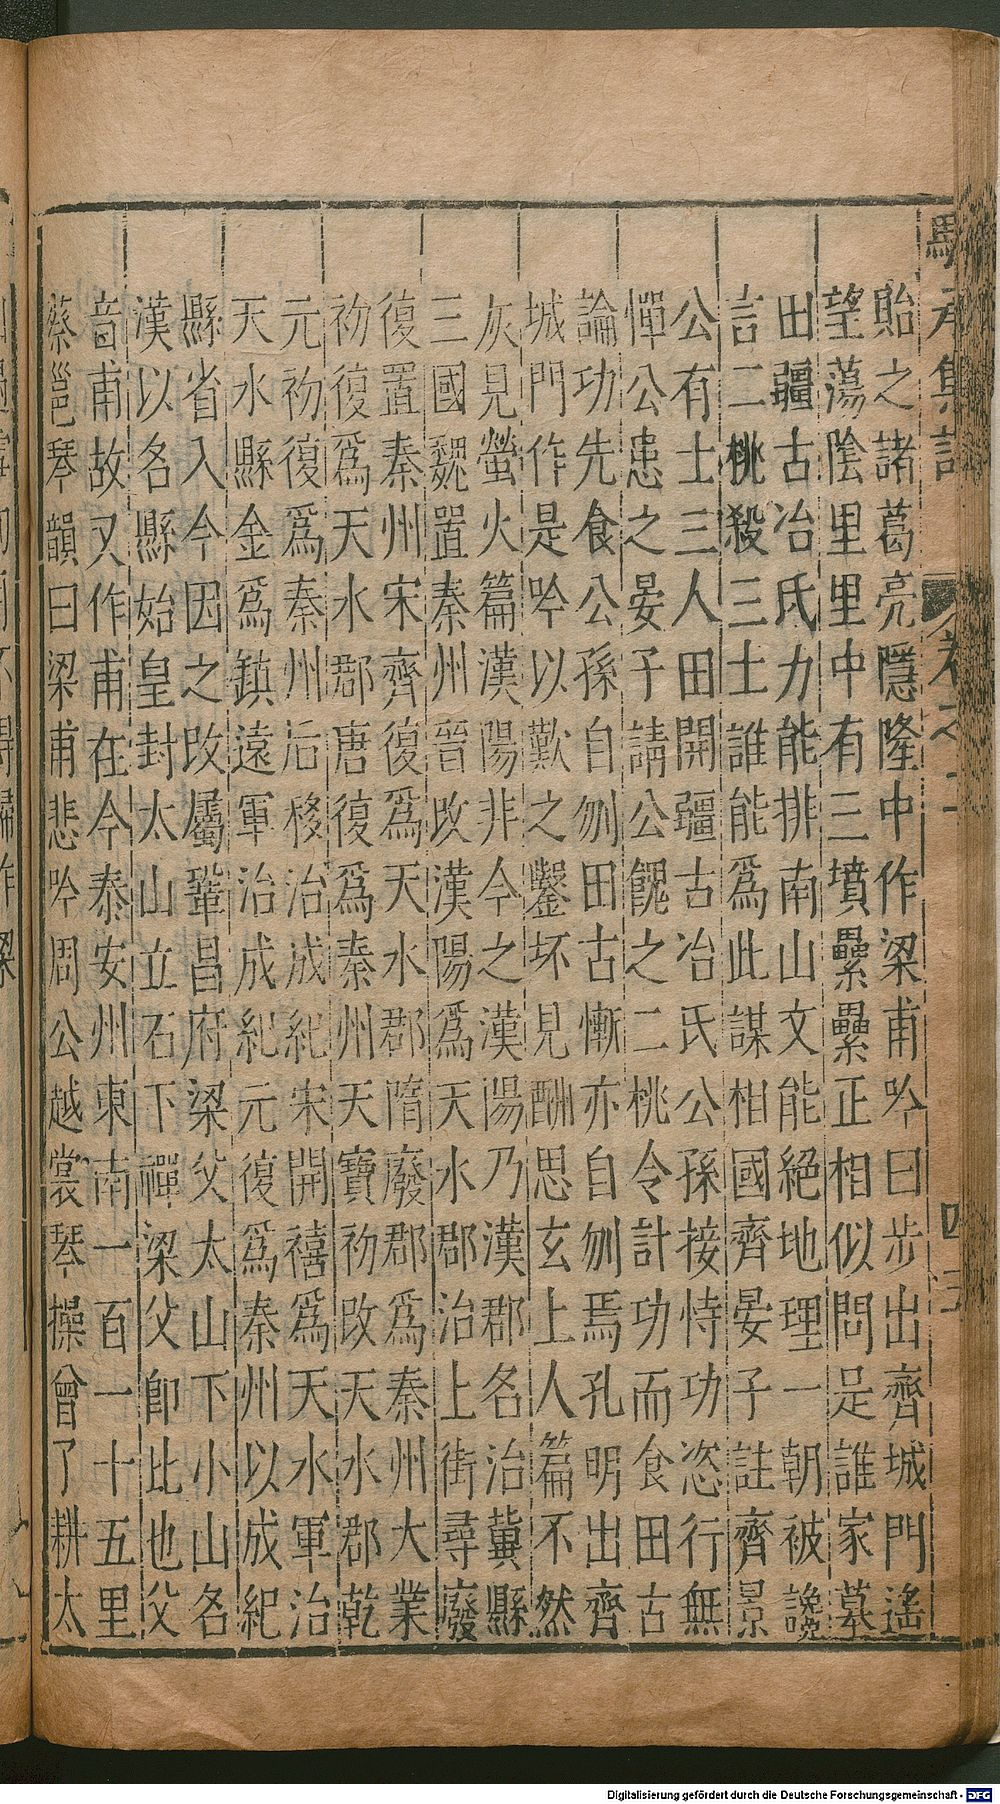 貽之諸葛亮隱隆中作梁甫吟曰步出齊城門遙
望蕩陰里里中有三墳纍纍正相似問是誰家墓
田疆古冶氏力能排南山文能絕地理一朝被讒
言二桃殺三士誰能爲此謀相國齊晏子註齊景
公有士三人田開疆古冶氏公孫接恃功恣行無
憚公患之晏子請公餽之二桃令計功而食田古
論功先食公孫自刎田古慚亦自刎焉孔明出齊
城門作是吟以歎之鑿坏見酬思玄上人篇不然
灰見螢火篇漢陽非今之漢陽乃漢郡名治冀縣
三國魏置秦州晉改漢陽爲天水郡治上街尋廢
復置秦州宋齊復爲天水郡隋廢郡爲秦州大業
初復爲天水郡唐復爲秦州天寶初改天水郡乾
元初復爲秦州后移治成紀宋開禧爲天水軍治
天水縣金爲鎮遠軍治成紀元復爲秦州以成紀
縣省入今因之改屬鞏昌府梁父太山下小山名
漢以名縣始皇封太山立石下禪梁父卽此也父
音甫故又作甫在今泰安州東南一百一十五里
蔡邕琴韻曰梁甫悲吟周公越裳琴操曾了耕太
卷之
四
Digitalisierung gefördert durch die Deutsche Forschungsgemeinschaft - DFG